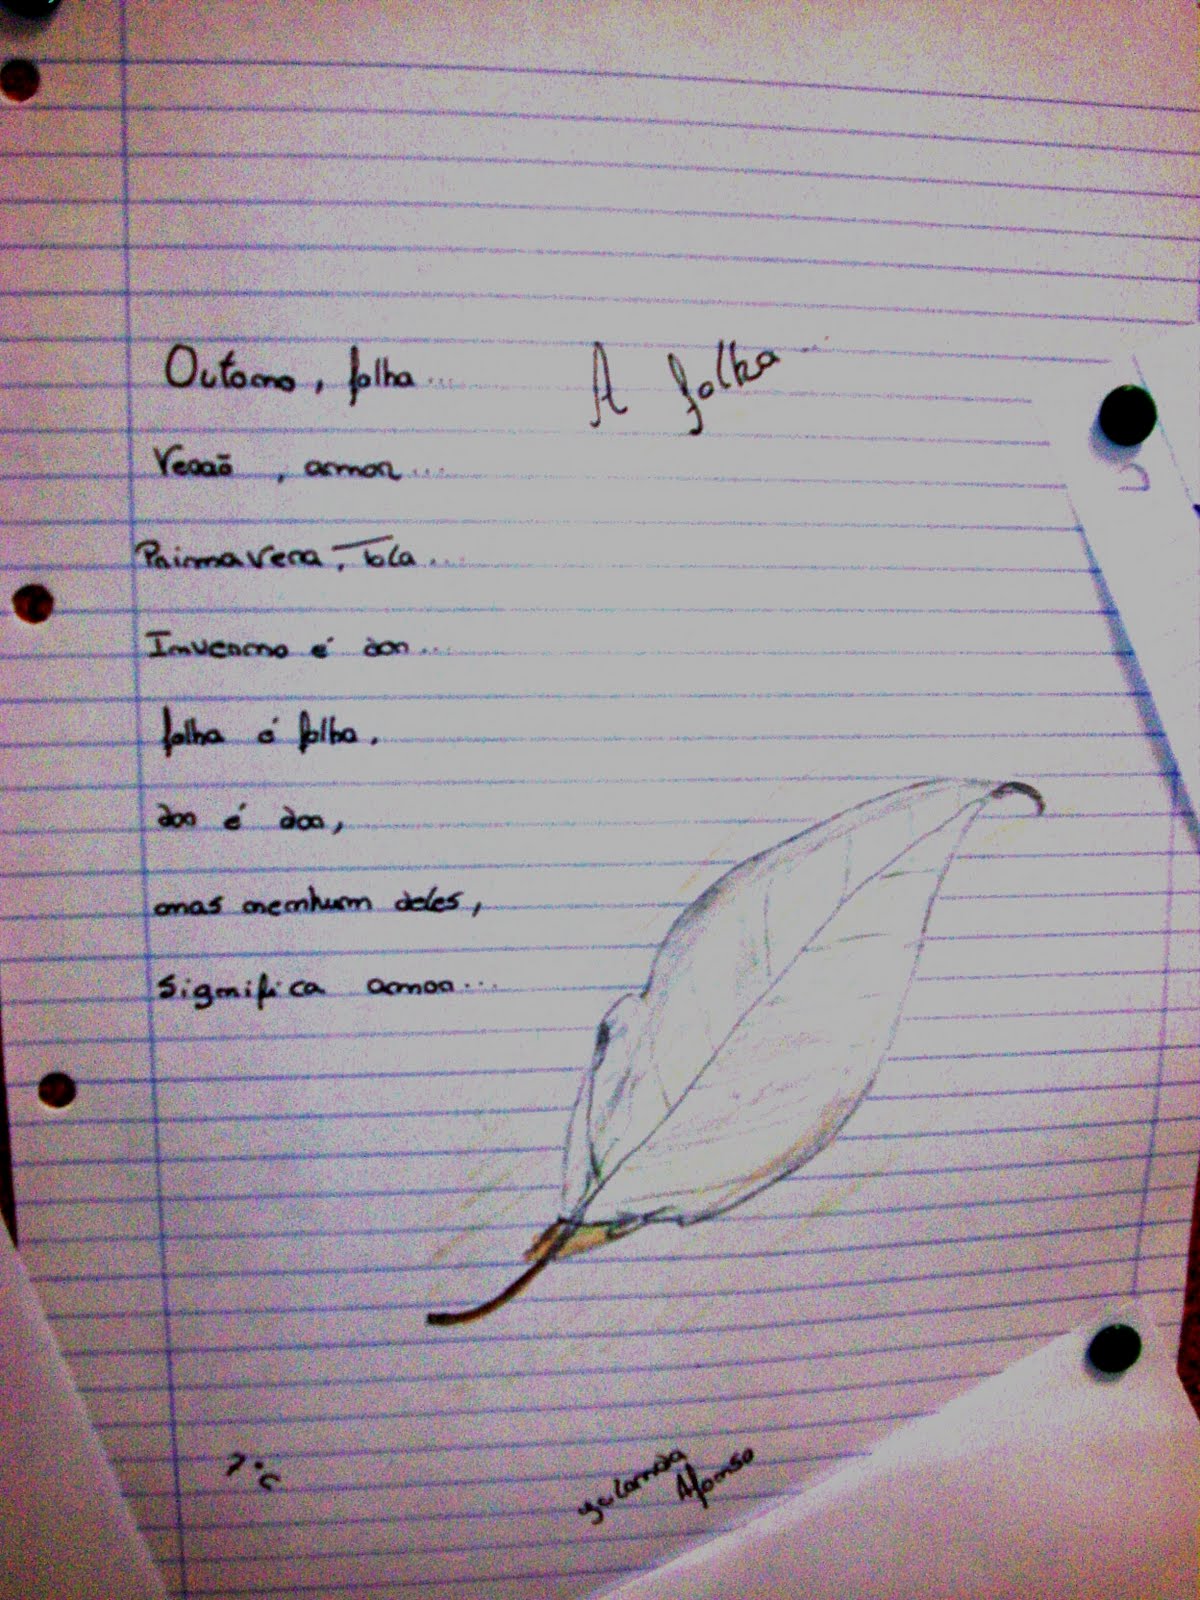 A folha...
Outono, folha...
Verão, amor...
Primavera,
Inverno é dor...
folha é folha,
dor é dor,
mas nenhum deles,
significa amor...
7ºC
Yolanda
Afonso